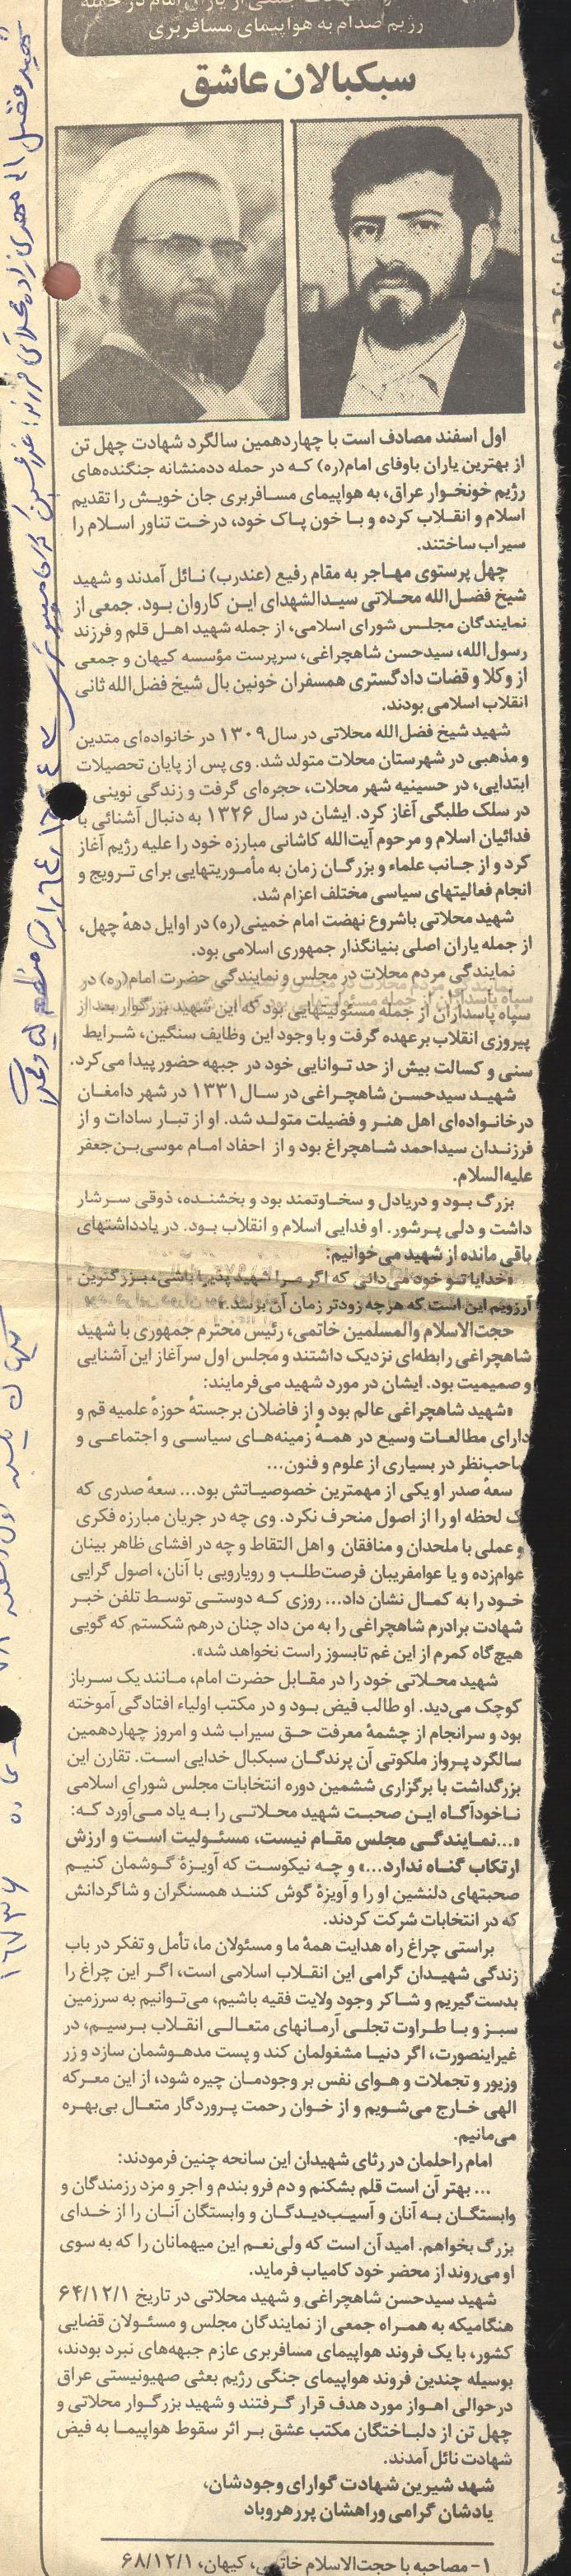 رژیم صدام به هواپیمای مسافربری
سبکبالان عاشق
اول اسفند مصادف است با چهاردهمین سالگرد شهادت چهل تن
از بهترین یاران باوفای امام(ره) که در حمله ددمنشانه جنگنده‌های
رژیم خونخوار عراق، به هواپیمای مسافربری جان خویش را تقدیم
اسلام و انقلاب کرده و با خون پاک خود، درخت تناور اسلام را
سیراب ساختند.
چهل پرستوی مهاجر به مقام رفیع (عندرب) نائل آمدند و شهید
شیخ فضل‌الله محلاتی سیدالشهدای این کاروان بود. جمعی از
نمایندگان مجلس شورای اسلامی، از جمله شهید اهل قلم و فرزند
رسول‌الله، سیدحسن شاهچراغی، سرپرست مؤسسه کیهان و جمعی
از وکلا و قضات دادگستری همسفران خونین بال شیخ فضل‌الله ثانی
انقلاب اسلامی بودند.
شهید شیخ فضل‌الله محلاتی در سال ۱۳۰۹ در خانواده‌ای متدین
و مذهبی در شهرستان محلات متولد شد. وی پس از پایان تحصیلات
ابتدایی، در حسینیه شهر محلات، حجره‌ای گرفت و زندگی نوینی
در سلک طلبگی آغاز کرد. ایشان در سال ۱۳۲۶ به دنبال آشنائی با
فدائیان اسلام و مرحوم آیت‌الله کاشانی مبارزه خود را علیه رژیم آغاز
کرد و از جانب علماء و بزرگان زمان به مأموریتهایی برای ترویج و
انجام فعالیتهای سیاسی مختلف اعزام شد.
شهید محلاتی باشروع نهضت امام خمینی(ره) در اوایل دههٔ چهل،
از جمله یاران اصلی بنیانگذار جمهوری اسلامی بود.
نمایندگی مردم محلات در مجلس و نمایندگی حضرت امام(ره) در
سپاه پاسداران از جمله مسئولیتهایی بود که این شهید بزرگوار بعد از
پیروزی انقلاب برعهده گرفت و با وجود این وظایف سنگین، شرایط
سنی و کسالت بیش از حد توانایی خود در جبهه حضور پیدا می‌کرد.
شهید سیدحسن شاهچراغی در سال ۱۳۳۱ در شهر دامغان
درخانواده‌ای اهل هنر و فضیلت متولد شد. او از تبار سادات و از
فرزندان سیداحمد شاهچراغ بود و از احفاد امام موسی‌بن‌جعفر
علیه‌السلام.
بزرگ بود و دریادل و سخاوتمند بود و بخشنده، ذوقی سرشار
داشت و دلی پرشور. او فدایی اسلام و انقلاب بود. در یادداشتهای
باقی مانده از شهید می‌خوانیم:
«خدایا تو خود می‌دانی که اگر مرا شهید پذیرا باشی، بزرگترین
آرزویم این است که هرچه زودتر زمان آن برسد.»
حجت‌الاسلام والمسلمین خاتمی، رئیس محترم جمهوری با شهید
شاهچراغی رابطه‌ای نزدیک داشتند و مجلس اول سرآغاز این آشنایی
و صمیمیت بود. ایشان در مورد شهید می‌فرمایند:
«شهید شاهچراغی عالم بود و از فاضلان برجستهٔ حوزهٔ علمیه قم و
دارای مطالعات وسیع در همهٔ زمینه‌های سیاسی و اجتماعی و
صاحب‌نظر در بسیاری از علوم و فنون...
سعهٔ صدر او یکی از مهمترین خصوصیاتش بود... سعهٔ صدری که
یک لحظه او را از اصول منحرف نکرد. وی چه در جریان مبارزه فکری
و عملی با ملحدان و منافقان و اهل التقاط و چه در افشای ظاهر بینان
عوام‌زده و یا عوامفریبان فرصت‌طلب و رویارویی با آنان، اصول گرایی
خود را به کمال نشان داد... روزی که دوستی توسط تلفن خبر
شهادت برادرم شاهچراغی را به من داد چنان درهم شکستم که گویی
هیچ‌گاه کمرم از این غم تابسوز راست نخواهد شد».
شهید محلاتی خود را در مقابل حضرت امام، مانند یک سرباز
کوچک می‌دید. او طالب فیض بود و در مکتب اولیاء افتادگی آموخته
بود و سرانجام از چشمهٔ معرفت حق سیراب شد و امروز چهاردهمین
سالگرد پرواز ملکوتی آن پرندگان سبکبال خدایی است. تقارن این
بزرگداشت با برگزاری ششمین دوره انتخابات مجلس شورای اسلامی
ناخودآگاه این صحبت شهید محلاتی را به یاد می‌آورد که:
«...نمایندگی مجلس مقام نیست، مسئولیت است و ارزش
ارتکاب گناه ندارد...» و چه نیکوست که آویزهٔ گوشمان کنیم
صحبتهای دلنشین او را و آویزهٔ گوش کنند همسنگران و شاگردانش
که در انتخابات شرکت کردند.
براستی چراغ راه هدایت همهٔ ما و مسئولان ما، تأمل و تفکر در باب
زندگی شهیدان گرامی این انقلاب اسلامی است، اگر این چراغ را
بدست گیریم و شاکر وجود ولایت فقیه باشیم، می‌توانیم به سرزمین
سبز و با طراوت تجلی آرمانهای متعالی انقلاب برسیم، در
غیراینصورت، اگر دنیا مشغولمان کند و پست مدهوشمان سازد و زر
وزیور و تجملات و هوای نفس بر وجودمان چیره شود، از این معرکه
الهی خارج می‌شویم و از خوان رحمت پروردگار متعال بی‌بهره
می‌مانیم.
امام راحلمان در رثای شهیدان این سانحه چنین فرمودند:
... بهتر آن است قلم بشکنم و دم فرو بندم و اجر و مزد رزمندگان و
وابستگان به آنان و آسیب‌دیدگان و وابستگان آنان را از خدای
بزرگ بخواهم. امید آن است که ولی‌نعم این میهمانان را که به سوی
او می‌روند از محضر خود کامیاب فرماید.
شهید سیدحسن شاهچراغی و شهید محلاتی در تاریخ ۶۴/۱۲/۱
هنگامیکه به همراه جمعی از نمایندگان مجلس و مسئولان قضایی
کشور، با یک فروند هواپیمای مسافربری عازم جبهه‌های نبرد بودند،
بوسیله چندین فروند هواپیمای جنگی رژیم بعثی صهیونیستی عراق
درحوالی اهواز مورد هدف قرار گرفتند و شهید بزرگوار محلاتی و
چهل تن از دلباختگان مکتب عشق بر اثر سقوط هواپیما به فیض
شهادت نائل آمدند.
شهد شیرین شهادت گوارای وجودشان،
یادشان گرامی و راهشان پررهرو باد
۱- مصاحبه با حجت‌الاسلام خاتمی، کیهان، ۶۸/۱۲/۱
۱۶۷۳۷۶